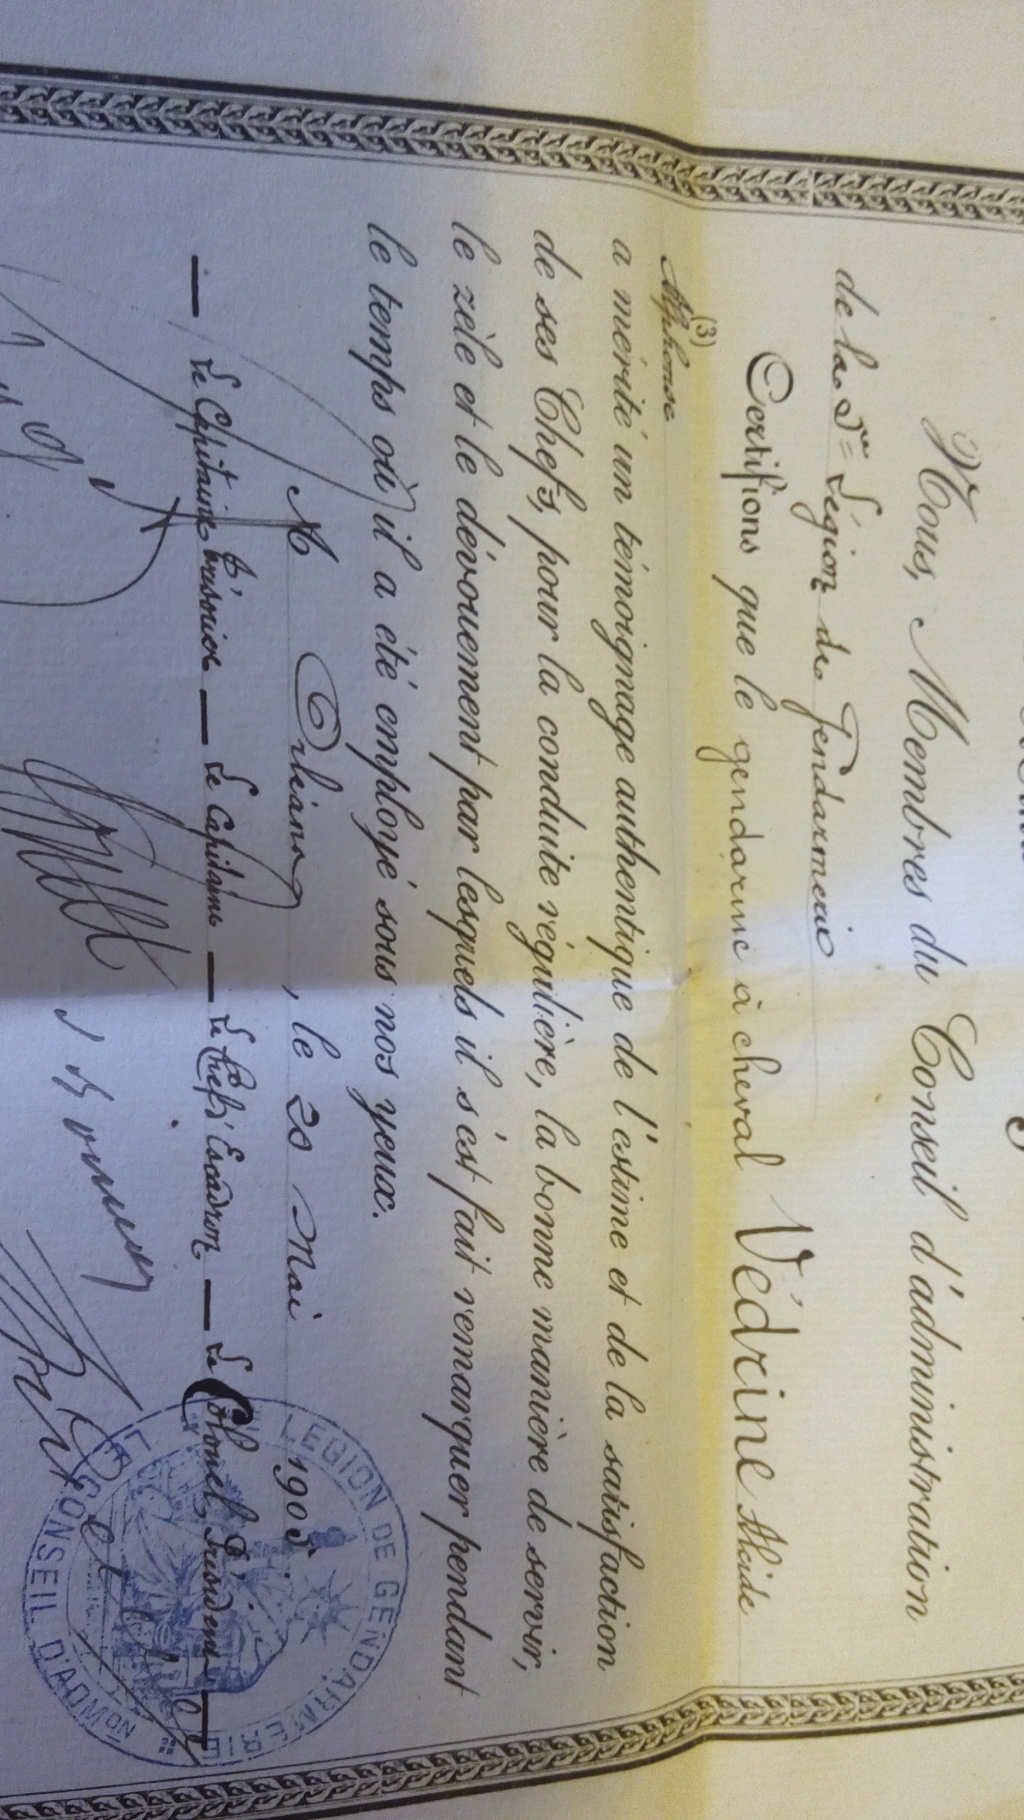 Nous, Membres du Conseil d'administration
de la 5me Légion de Gendarmerie
Certifions que le gendarme à cheval Védrine Alcide
Alphonse (3)
a mérité un témoignage authentique de l'estime et de la satisfaction
de ses Chefs, pour la conduite régulière, la bonne manière de servir,
le zèle et le dévouement par lesquels il s'est fait remarquer pendant
le temps où il a été employé sous nos yeux.
A Orléans, le 20 Mai 1905
— Le Capitaine Trésorier — Le Capitaine — Le Chef d'Escadron, — Le Colonel Président —
LEGION DE GENDARMERIE
LE CONSEIL D'ADMON